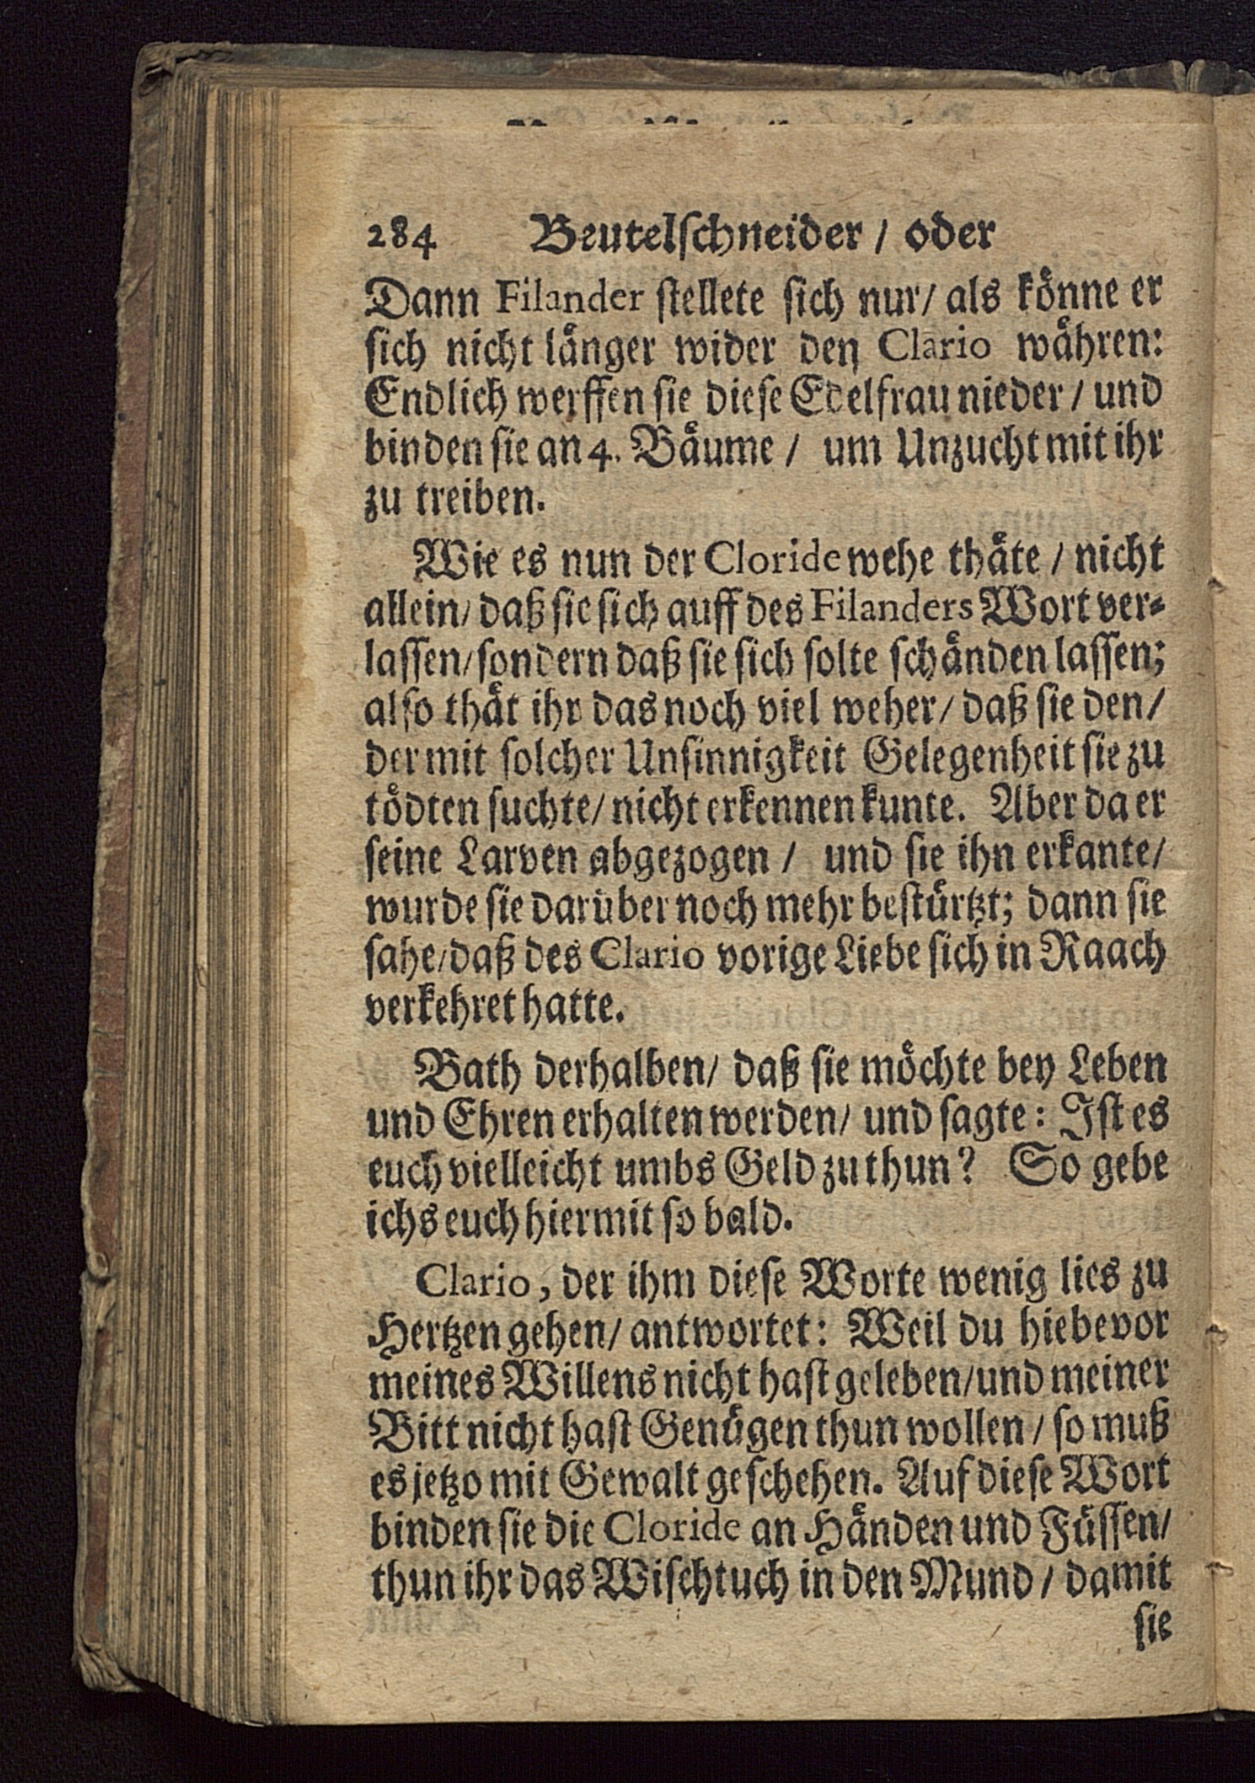 284 Beutelschneider / oder
Dann Filander stellete sich nur / als könne er
sich nicht länger wider den Clario währen:
Endlich werffen sie diese Edelfrau nieder / und
binden sie an 4. Bäume / um Unzucht mit ihr
zu treiben.
Wie es nun der Cloride wehe thäte / nicht
allein / daß sie sich auff des Filanders Wort ver-
lassen / sondern daß sie sich solte schänden lassen;
also thät ihr das noch viel weher / daß sie den /
der mit solcher Unsinnigkeit Gelegenheit sie zu
tödten suchte / nicht erkennen kunte. Aber da er
seine Larven abgezogen / und sie ihn erkante /
wurde sie darüber noch mehr bestürtzt; dann sie
sahe / daß des Clario vorige Liebe sich in Raach
verkehret hatte.
Bath derhalben / daß sie möchte bey Leben
und Ehren erhalten werden / und sagte: Ist es
euch vielleicht umbs Geld zu thun? So gebe
ichs euch hiermit so bald.
Clario, der ihm diese Worte wenig lies zu
Hertzen gehen / antwortet: Weil du hiebevor
meines Willens nicht hast geleben / und meiner
Bitt nicht hast Genügen thun wollen / so muß
es jetzo mit Gewalt geschehen. Auf diese Wort
binden sie die Cloride an Händen und Füssen /
thun ihr das Wischtuch in den Mund / damit
sie